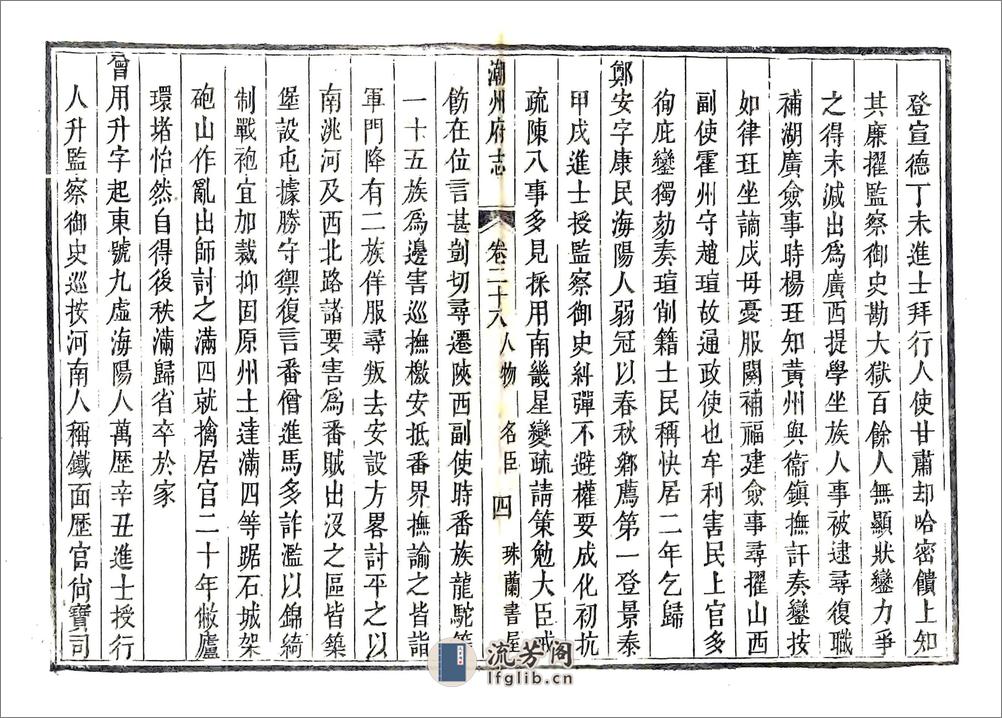 登宣德丁未進士拜行人使甘肅却哈密饋上知
其廉擢監察御史勘大獄百餘人無顯狀鑾力爭
之得末減出爲廣西提學坐族人事被逮尋復職
補湖廣僉事時楊珏知黃州與衞鎮撫訐奏鑾按
如律珏坐謫戍母憂服闋補福建僉事尋擢山西
副使霍州守趙瑄故通政使也牟利害民上官多
徇庇鑾獨劾奏瑄削籍士民稱快居二年乞歸
鄭安字康民海陽人弱冠以春秋鄉薦第一登景泰
甲戌進士授監察御史糾彈不避權要成化初抗
疏陳八事多見採用南畿星變疏請策勉大臣戒
潮州府志 卷二十八 人物 名臣 四 珠蘭書屋
飭在位言甚剴切尋遷陝西副使時番族龍駝等
一十五族爲邊害巡撫檄安抵番界撫諭之皆詣
軍門降有二族佯服尋叛去安設方畧討平之以
南洮河及西北路諸要害爲番賊出沒之區皆築
堡設屯據勝守禦復言番僧進馬多詐濫以錦綺
制戰袍宜加裁抑固原州土達滿四等踞石城架
砲山作亂出師討之滿四就擒居官二十年敝廬
環堵怡然自得後秩滿歸省卒於家
曾用升字起東號九虛海陽人萬歷辛丑進士授行
人升監察御史巡按河南人稱鐵面歷官尚寶司
流芳阁
lfglib.cn